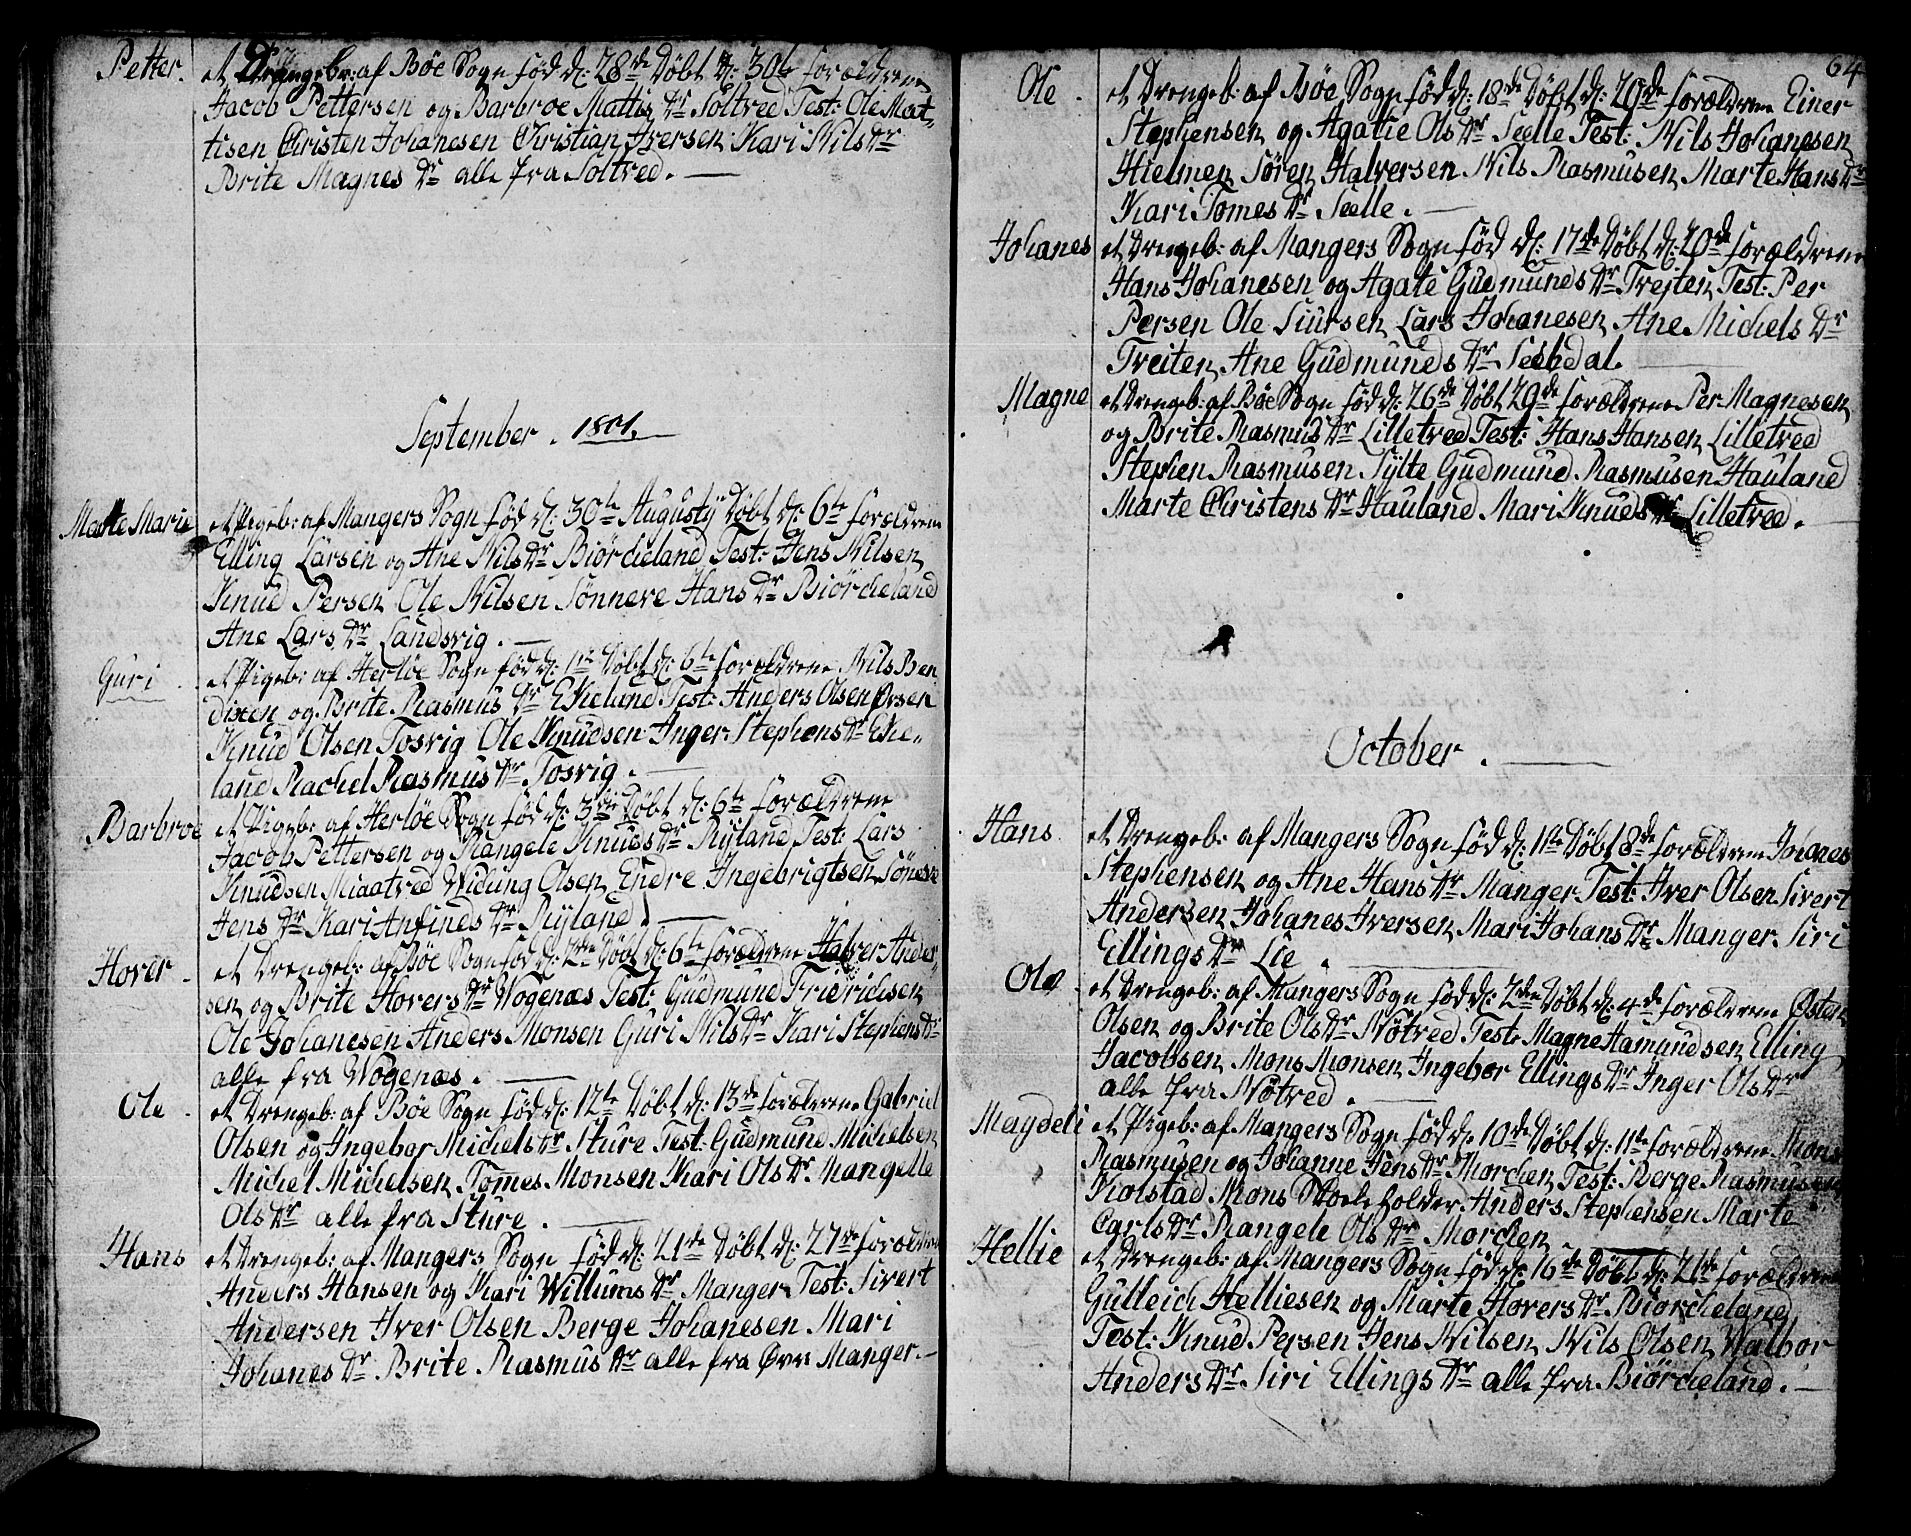 Petter. et Drengeb: af Bøe Sogn fød d: 28de Døbt d: 30te forældrene
Jacob Pettersen og Barbroe Mattis Dr Soltved Test: Ole Mat-
tisen Christen Johanesen Christian Iversen Kari Nils Dr
Brite Magnes Dr alle fra Soltved.
September. 1801.
Marte Marie et Pigeb: af Mangers Sogn fød d: 30te Augusty Døbt d: 6te forældrene
Elling Larsen og Ane Nils Dr Biørcheland Test: Jens Nilsen
Knud Persen Ole Nilsen Sønneve Hans Dr Biørcheland
Ane Lars Dr Landsvig.
Guri et Pigeb: af Herløe Sogn fød d: 1te Døbt d: 6te forældrene Nils Ben
dixen og Brite Rasmus Dr Ekelund Test: Anders Olsen Øvsen
Knud Olsen Tosvig Ole Knudsen Inger Stephens Dr Eke-
land Rachel Rasmus Dr Tosvig.
Barbroe et Pigeb: af Herløe Sogn fød d: 3die Døbt d: 6te forældrene
Jacob Pettersen og Rangele Knuds Dr Ryland Test: Lars
Knudsen Miaatved Widung Olsen Endre Ingebrigtsen Sønneve
Jens Dr Kari Anfinds Dr Ryland
Hover. et Drengeb: af Bøe Sogn fød d: 2den Døbt d: 6te forældrene Halver Ander-
sen og Brite Hovers Dr Wogenæs Test: Gudmund Fridrichsen
Ole Johanesen Anders Monsen Guri Nils Dr Kari Stephens Dr
alle fra Wogenæs.
Ole. et Drengeb: af Bøe Sogn fød d: 12te Døbt d: 13de forældrene Gabriel
Olsen og Ingebor Michels Dr Sture Test: Gudmund Michelsen
Michel Michelsen Tomes Monsen Kari Ols Dr Mangelle
Ols Dr alle fra Sture.
Hans et Drengeb: af Mangers Sogn fød d: 21de Døbt d: 27de forældrene
Anders Hansen og Kari Willums Dr Manger Test: Sivert
Andersen Iver Olsen Berge Johanesen Mari
Johanes Dr Brite Rasmus Dr alle fra Øvre Manger.
64
Ole. et Drengeb: af Bøe Sogn fød d: 18de Døbt d: 20de forældrene Einer
Stephensen og Agatie Ols Dr Seelle Test: Nils Johanesen
Hielmen Søren Halversen Nils Rasmusen Marte Hans Dr
Kari Tomes Dr Seelle.
Johanes et Drengeb: af Mangers Sogn fød d: 17de Døbt d: 20de forældrene
Hans Johanesen og Agate Gudmunds Dr Treiten Test: Per
Persen Ole Siursen Lars Johanesen Ane Michels Dr
Treiten Ane Gudmunds Dr Seebdal.
Magne et Drengeb: af Bøe Sogn fød d: 26de Døbt 29de forældrene Per Magnesen
og Brite Rasmus Dr Lilletved Test: Hans Hansen Lilletved
Stephen Rasmusen Sylte Gudmund Rasmusen Hauland
Marte Christens Dr Hauland Mari Knuds Dr Lilletved.
October.
Hans. et Drengeb: af Mangers Sogn fød d: 1te Døbt 8de forældrene Johanes
Stephensen og Ane Hans Dr Manger Test: Iver Olsen Sivert
Andersen Johanes Iversen Mari Johans Dr Manger. Siri
Ellings Dr Lie.
Ole. et Drengeb: af Mangers Sogn fød d: 2den Døbt d: 4de forældrene Østen
Olsen og Brite Ols Dr Nøtved Test: Magne Hamundsen Elling
Jacobsen Mons Monsen Ingebor Ellings Dr Inger Ols Dr
alle fra Nøtved.
Magdeli et Pigeb: af Mangers Sogn fød d: 10de Døbt d: 11te forældrene Mons
Rasmusen og Johanne Jens Dr Morchen Test: Berge Rasmusen
Kolstad Mons Skoeleholder Anders Stephensen Marte
Carls Dr Rangele Ols Dr Morchen
Hellie et Drengeb: af Mangers Sogn fød d: 16de Døbt d: 21de forældrene
Gulleich Helliesen og Marte Hovers Dr Biørcheland
Test: Knud Persen Jens Nilsen Nils Olsen Walbor
Anders Dr Siri Ellings Dr alle fra Biørcheland.